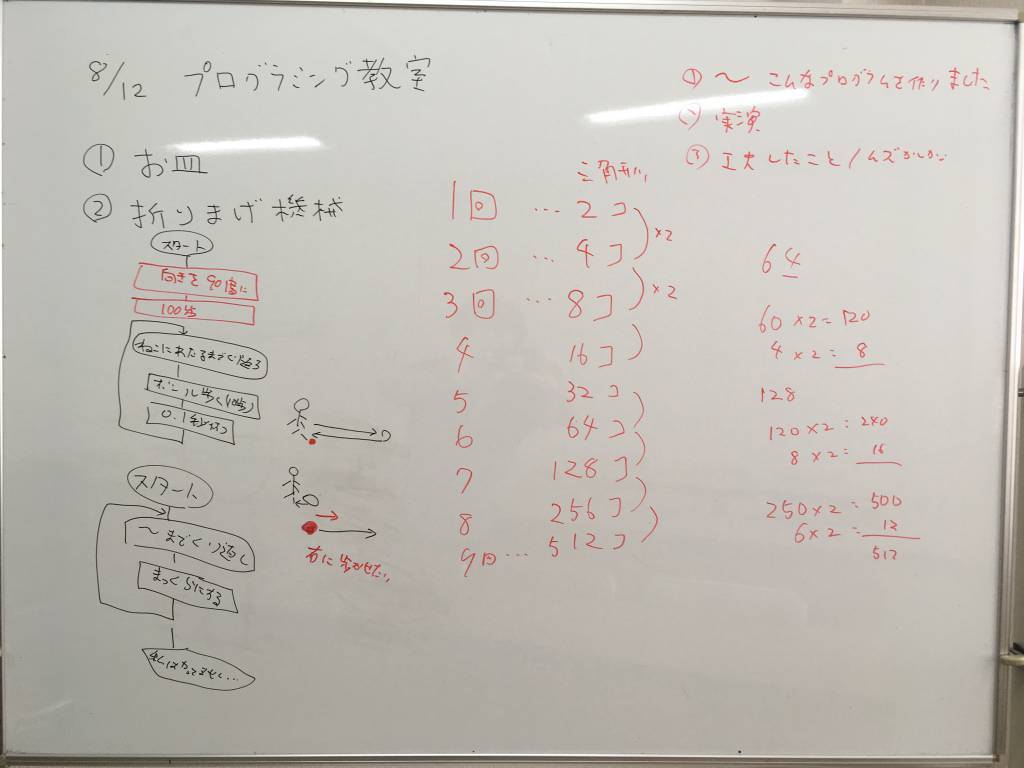 8/12 プログラミング教室
① お皿
② 折りまげ機械
スタート
向きを90度に
100歩
ねこにあたるまでくり返す
ボール歩く(10歩)
0.1秒待つ
スタート
〜までくり返し
まっくらにする
右に歩かせたい
三角形
1回 … 2コ
×2
2回 … 4コ
×2
3回 … 8コ
4 16コ
5 32コ
6 64コ
7 128コ
8 256コ
9回 … 512コ
① 〜 こんなプログラムを作りました
② 実演
③ 工夫したこと/ムズかしかった
64
60×2=120
4×2=8
128
120×2=240
8×2=16
250×2=500
6×2=12
512